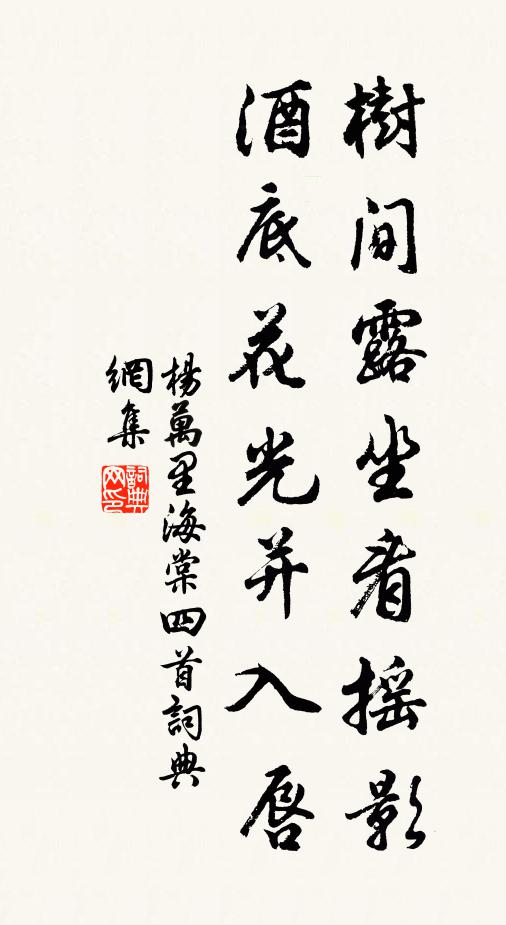 樹間露坐看搖影
酒底花光并入唇
楊萬里海棠四首詞典
網集
詞典
网印